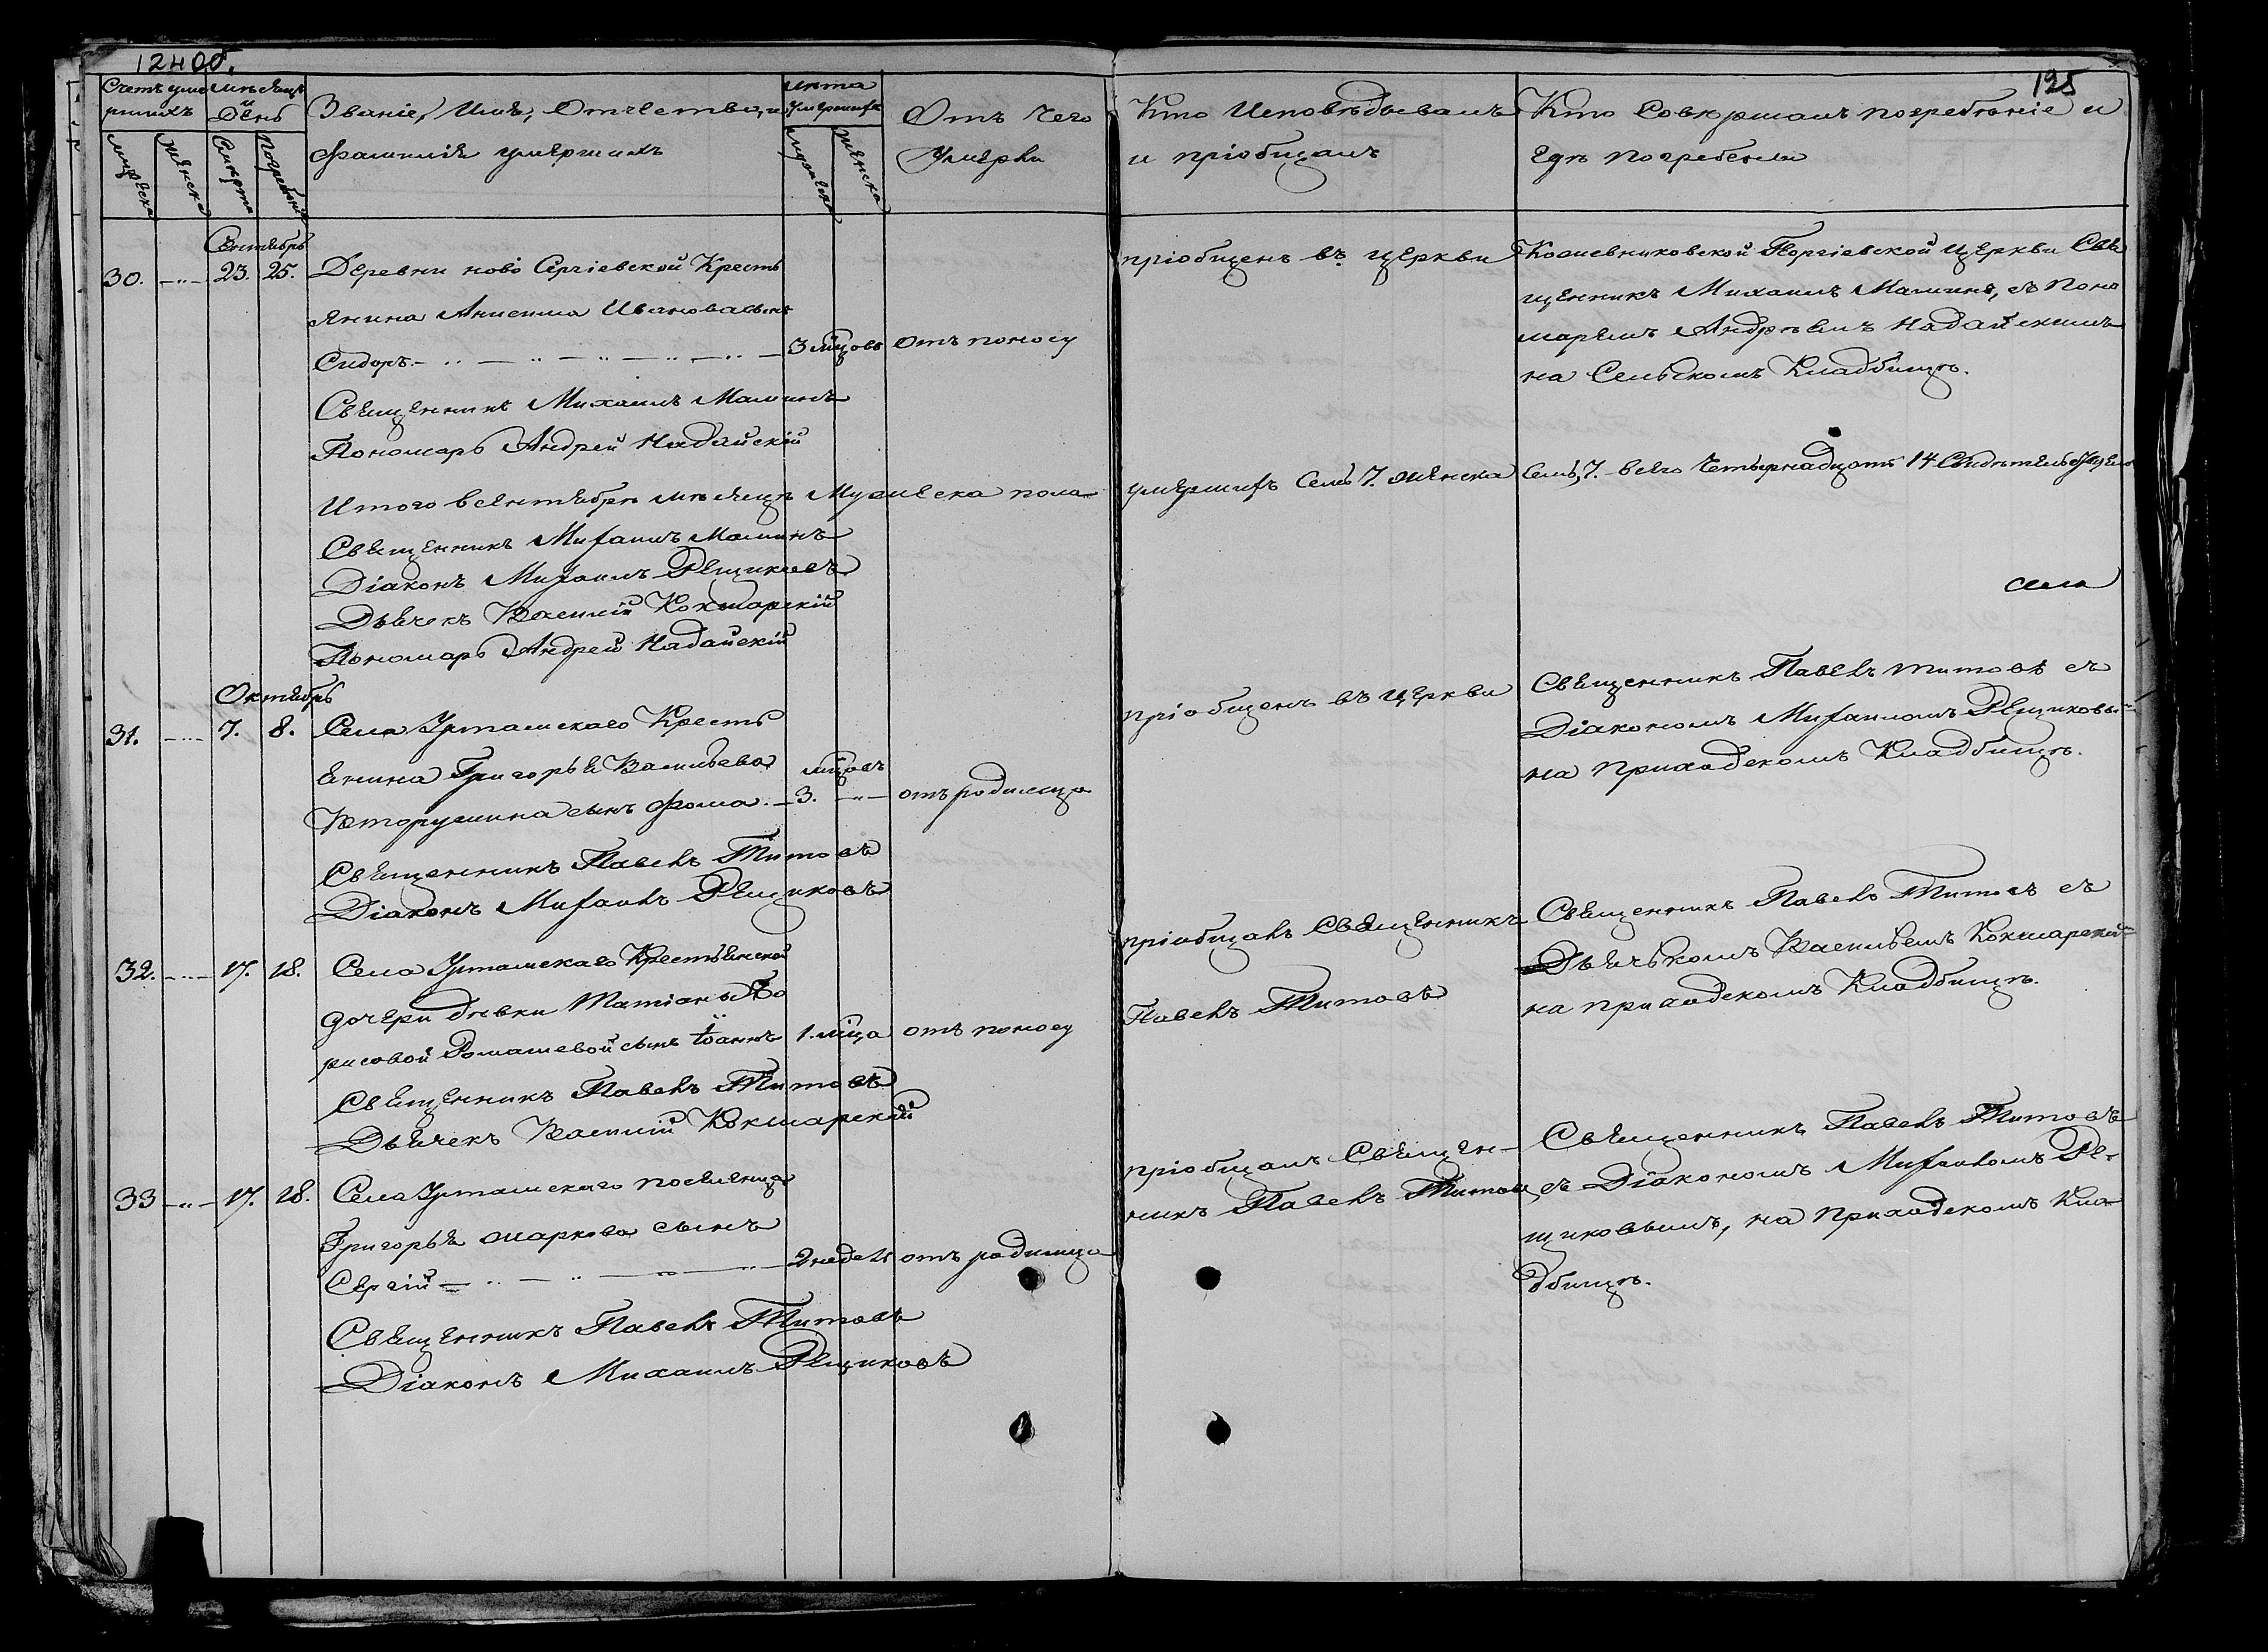 124 об.
125
Счетъ уме мѣсяцъ
ршихъ и День
Мужеска Женска Смерти Погребенія
Званіе, Имя, Отчество, и
Фамилія умершихъ
Лета
Умершихъ
Мужеска Женска
Отъ Чего
Умерли
Кто Исповѣдывалъ
и пріобщалъ
Кто Совершалъ погребѣніе и
гдѣ Погребены
Сентябрь
30. 23. 25. Деревни ново Сергіевской Кресть
янина Анисима Иванова сынъ
Сидоръ. 3 мѣцовъ Отъ поносу
пріобщенъ въ церкви
Кошевниковской Георгіевской церкви Свя
щенникъ Михаилъ Малининъ, съ Поно
маремъ Андреемъ Надайскимъ
на Сельскомъ Кладбищѣ.
Священникъ Михаилъ Малининъ
Пономарь Андрей Надайскій
Итого в сентябрѣ мѣсяцѣ Мужеска пола
умершихъ Семь 7. женска Семь, 7. всего Четырнадцать 14 Свидѣтельствуемъ
Священникъ Михаилъ Малининъ
Діаконъ Михаилъ Рещиковъ
Дьячекъ Василій Кокшарскій
Пономарь Андрей Надайскій
села
Октябрь
31. 7. 8. Села Урташскаго Кресть
янина Григорья Васильева
Вторушина сынъ Фома. мѣцовъ 3. отъ родимца
пріобщенъ въ церкви
Священникъ Павелъ Титовъ съ
Діакономъ Михаиломъ Рещиковы
на приходскомъ Кладбищѣ.
Священникъ Павелъ Титовъ
Діаконъ Михаилъ Рещиковъ
32. 17. 18. Села Урташскаго Крестьянской
дочери дѣвки Татіаны Бо
рисовой Ромашевой сынъ Іоаннъ 1. мѣца отъ поносу
пріобщалъ Священникъ
Павелъ Титовъ
Священникъ Павелъ Титовъ съ
Дьячькомъ Васильемъ Кокшарскі
на приходскомъ Кладбищѣ.
Священникъ Павелъ Титовъ
Дьячекъ Василій Кокшарскій
33 17. 18. Села Урташскаго поселенца
Григорья Маркова сынъ
Сергій 2 недели отъ родимца
пріобщалъ Священ
никъ Павелъ Титовъ
Священникъ Павелъ Титовъ
съ Діакономъ Михаиломъ Ре
щиковымъ, на Приходскомъ Кла
дбищѣ.
Священникъ Павелъ Титовъ
Діаконъ Михаилъ Рещиковъ